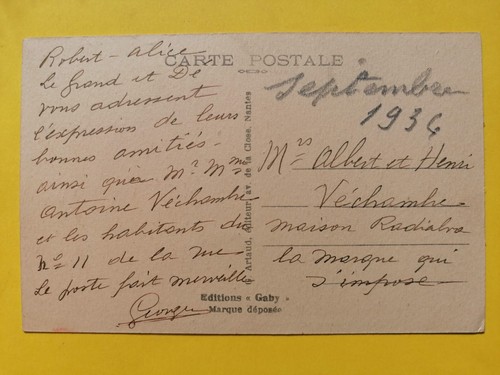 CARTE POSTALE
Robert - Alice
Le Grand et De
vous adressent
l'expression de leurs
bonnes amitiés -
ainsi que Mr Mme
Antoine Véchambre
et les habitants du
No 11 de la rue
Le poste fait merveille
Georges
Artaud, éditeur, av. de la Close, Nantes
Editions « Gaby »
Marque déposée
septembre
1936
Mrs Albert et Henri
Véchambre
maison Radialva
la marque qui
s'impose